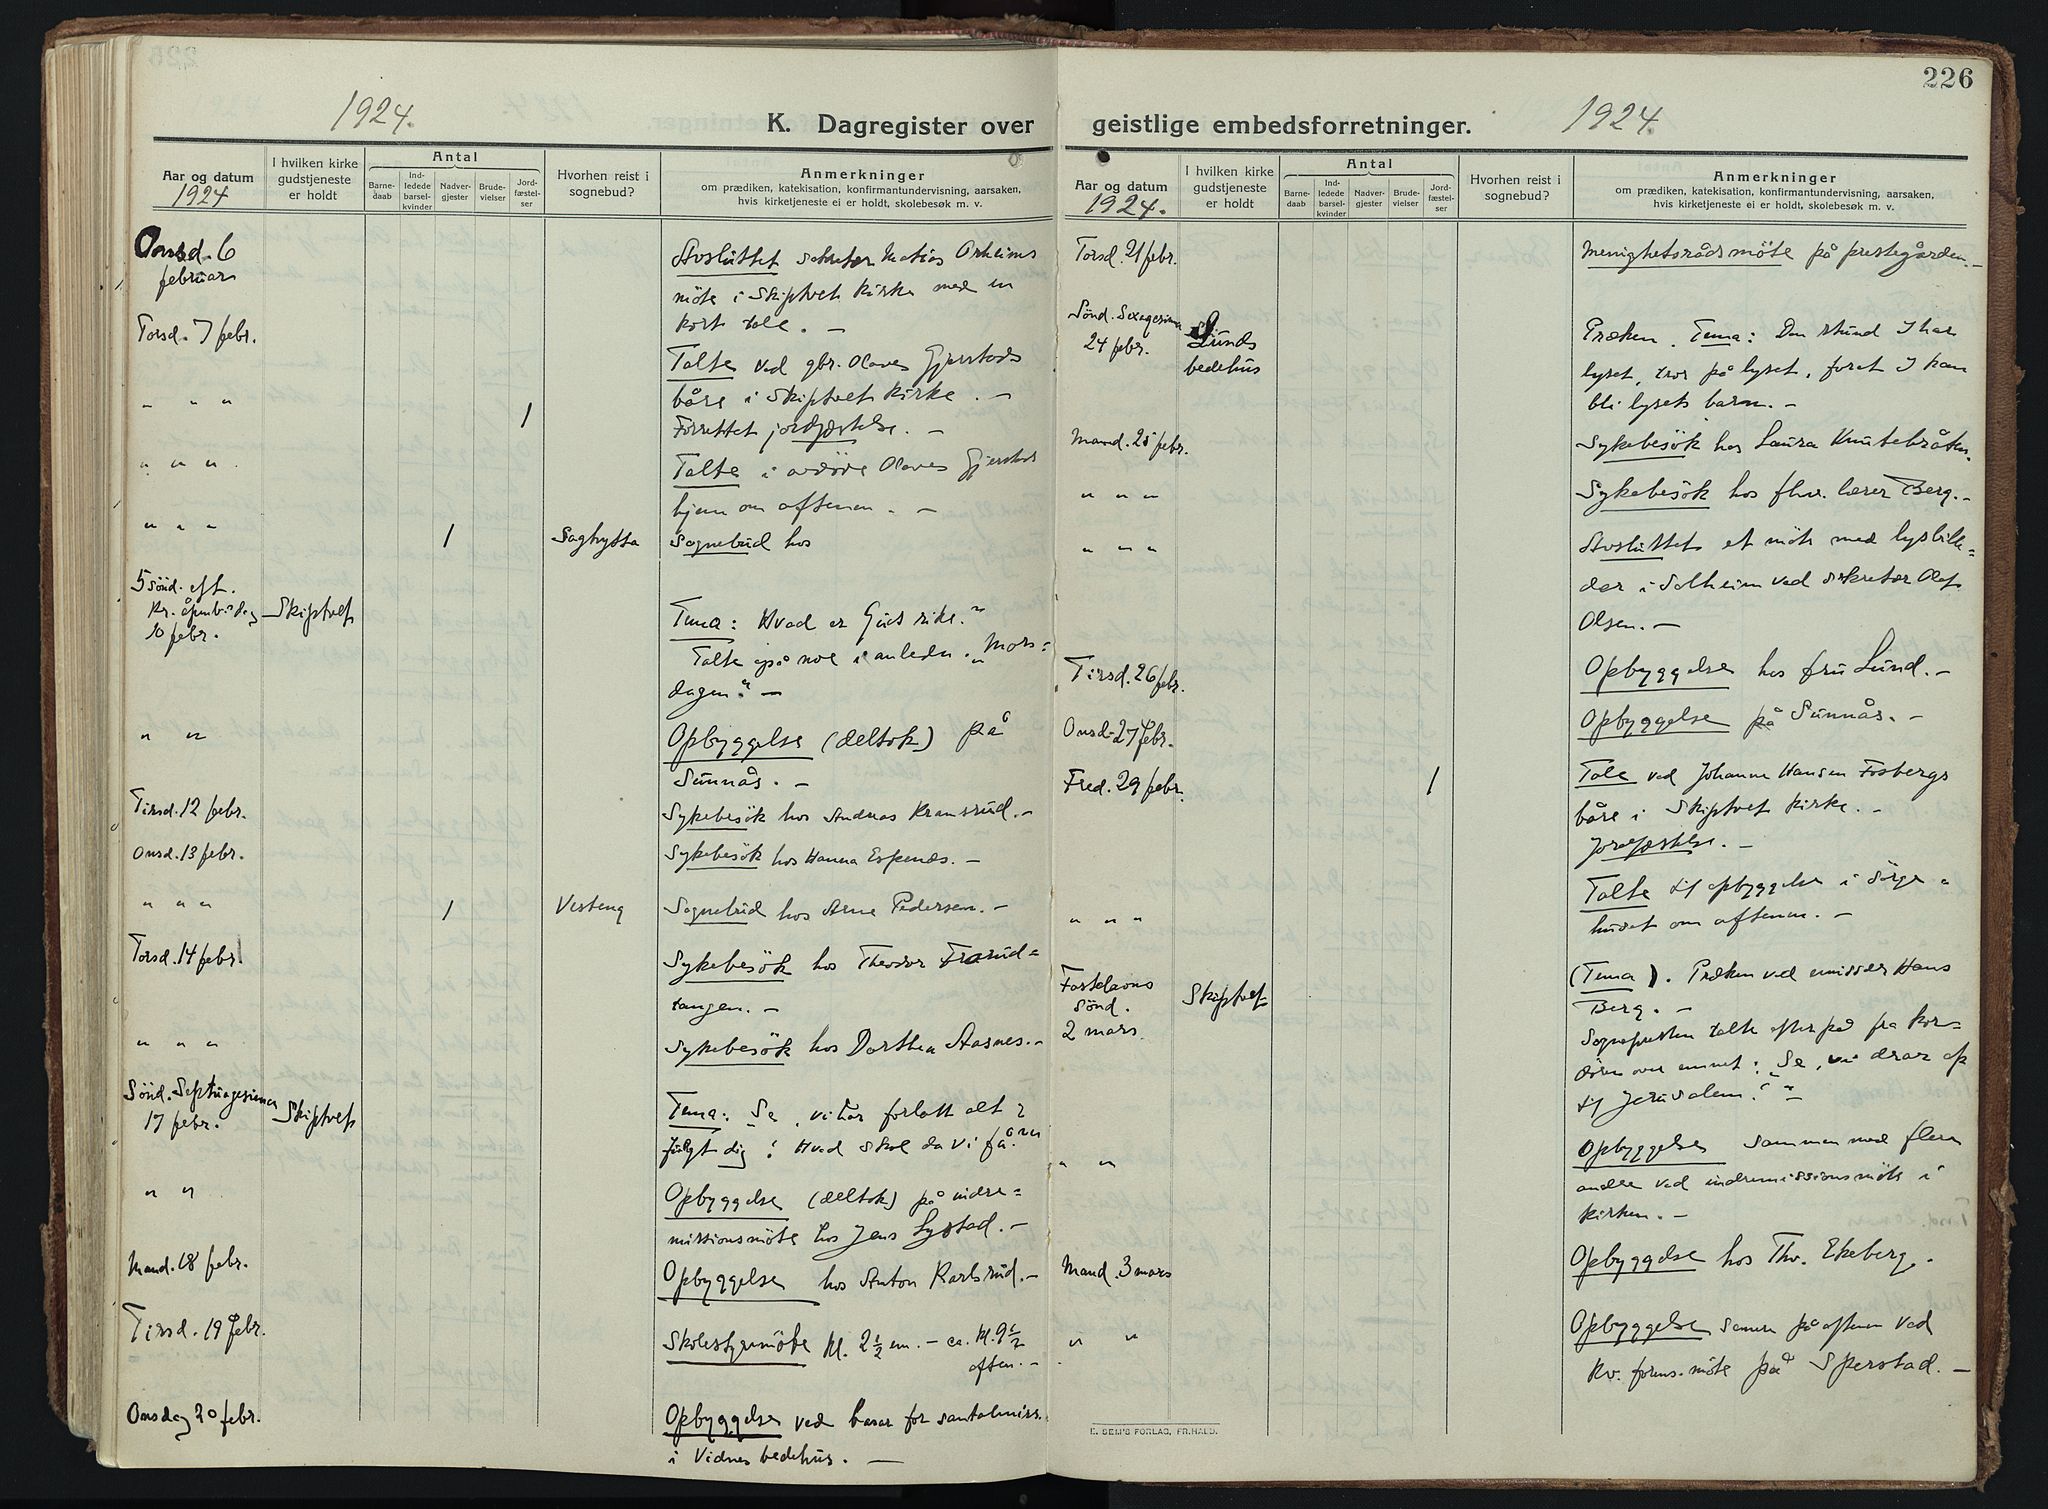 226
1924.
K. Dagregister over
Aar og datum
1924
I hvilken kirke
gudstjeneste
er holdt
Antal
Barne-
daab
Ind-
ledede
barsel-
kvinder
Nadver-
gjester
Brude-
vielser
Jord-
fæstel-
ser
Hvorhen reist i
sognebud?
Anmerkninger
om prædiken, katekisation, konfirmantundervisning, aarsaken,
hvis kirketjeneste ei er holdt, skolebesøk m. v.
Onsd. 6
februar
Avsluttet sekretær Matias Orheims
møte i Skiptvet kirke med en
kort tale. —
Torsd. 7 febr.
Talte ved gbr. Olaves Gjerstads
båre i Skiptvet kirke. —
" " "
1
Forrettet jordfæstelse. —
" " "
Talte i avdøde Olaves Gjerstads
hjem om aftenen. —
" " "
1
Saghytta
Sognebud hos
5 sønd. eft.
Kr. åpenb.dag
10 febr.
Skiptvet
Tema: Hvad er Guds rike?"
Talte også noe i anledn. "Mors-
dagen". —
" "
Opbyggelse (deltok) på
Sunnås. —
Tirsd. 12 febr.
Sykebesøk hos Andreas Kransrud. —
Onsd. 13 febr.
Sykebesøk hos Hanna Espenes. —
" " "
1
Vesteng
Sognebud hos Arne Pedersen. —
Torsd. 14 febr.
Sykebesøk hos Theodor
tangen. —
" " "
Sykebesøk hos Dorthea Aasnes. —
Sønd. Septuagesima
17 febr.
Skiptvet
Tema: Se, vi har forlatt alt &
fulgt dig! Hvad skal da vi få?"
" "
Opbyggelse (deltok) på indre-
missionsmøte hos Jens Lystad. —
Mand. 18 febr.
Opbyggelse hos Anton Karlsrud. —
Tirsd. 19 febr.
Skolestyremøte kl. 2 1/2 em. — ca. kl. 9 1/2
aften. —
Onsdag 20 febr.
Opbyggelse ved basar for santalmiss.
i Vidnes bedehus. —
geistlige embedsforretninger.
1924.
Aar og datum
1924.
I hvilken kirke
gudstjeneste
er holdt
Antal
Barne-
daab
Ind-
ledede
barsel-
kvinder
Nadver-
gjester
Brude-
vielser
Jord-
fæstel-
ser
Hvorhen reist i
sognebud?
Anmerkninger
om prædiken, katekisation, konfirmantundervisning, aarsaken,
hvis kirketjeneste ei er holdt, skolebesøk m. v.
Torsd. 21 febr.
Menighetsrådsmøte på prestegården. —
Sønd. Sexagesima
24 febr.
Lunds
bedehus
Præken. Tema: Den stund I har
lyset, tror på lyset, foret I kan
bli lysets barn. —
Mand. 25 febr.
Sykebesøk hos Laura Knutebråten.
" " "
Sykebesøk hos fhv. lærer Berg. —
" " "
Avsluttet et møte med lysbille-
der i Solheim ved sekretær Olaf
Olsen. —
Tirsd. 26 febr.
Opbyggelse hos fru Lund. —
Onsd. 27 febr.
Opbyggelse på Sunnås. —
Fred. 29 febr.
1
Tale ved Johanne Hansen Fosbergs
båre i Skiptvet kirke. —
Jordfæstelse. —
" " "
Talte til opbyggelse i sørge-
huset om aftenen. —
Fastelavns
sønd.
2 mars.
Skiptvet
(Tema). Præken ved emissær Hans
Berg. —
Sognepresten talte efterpå fra kor-
døren over emnet: "Se, vi drar op
til Jerusalem!" —
" "
Opbyggelse sammen med flere
andre ved indremissionsmøte i
kirken. —
Mand. 3 mars
Opbyggelse hos Thv. Ekeberg. —
" "
Opbyggelse samme på aftenen ved
Kv. forens. møte på Sperstad. —
E. SEM'S FORLAG, FR.HALD.